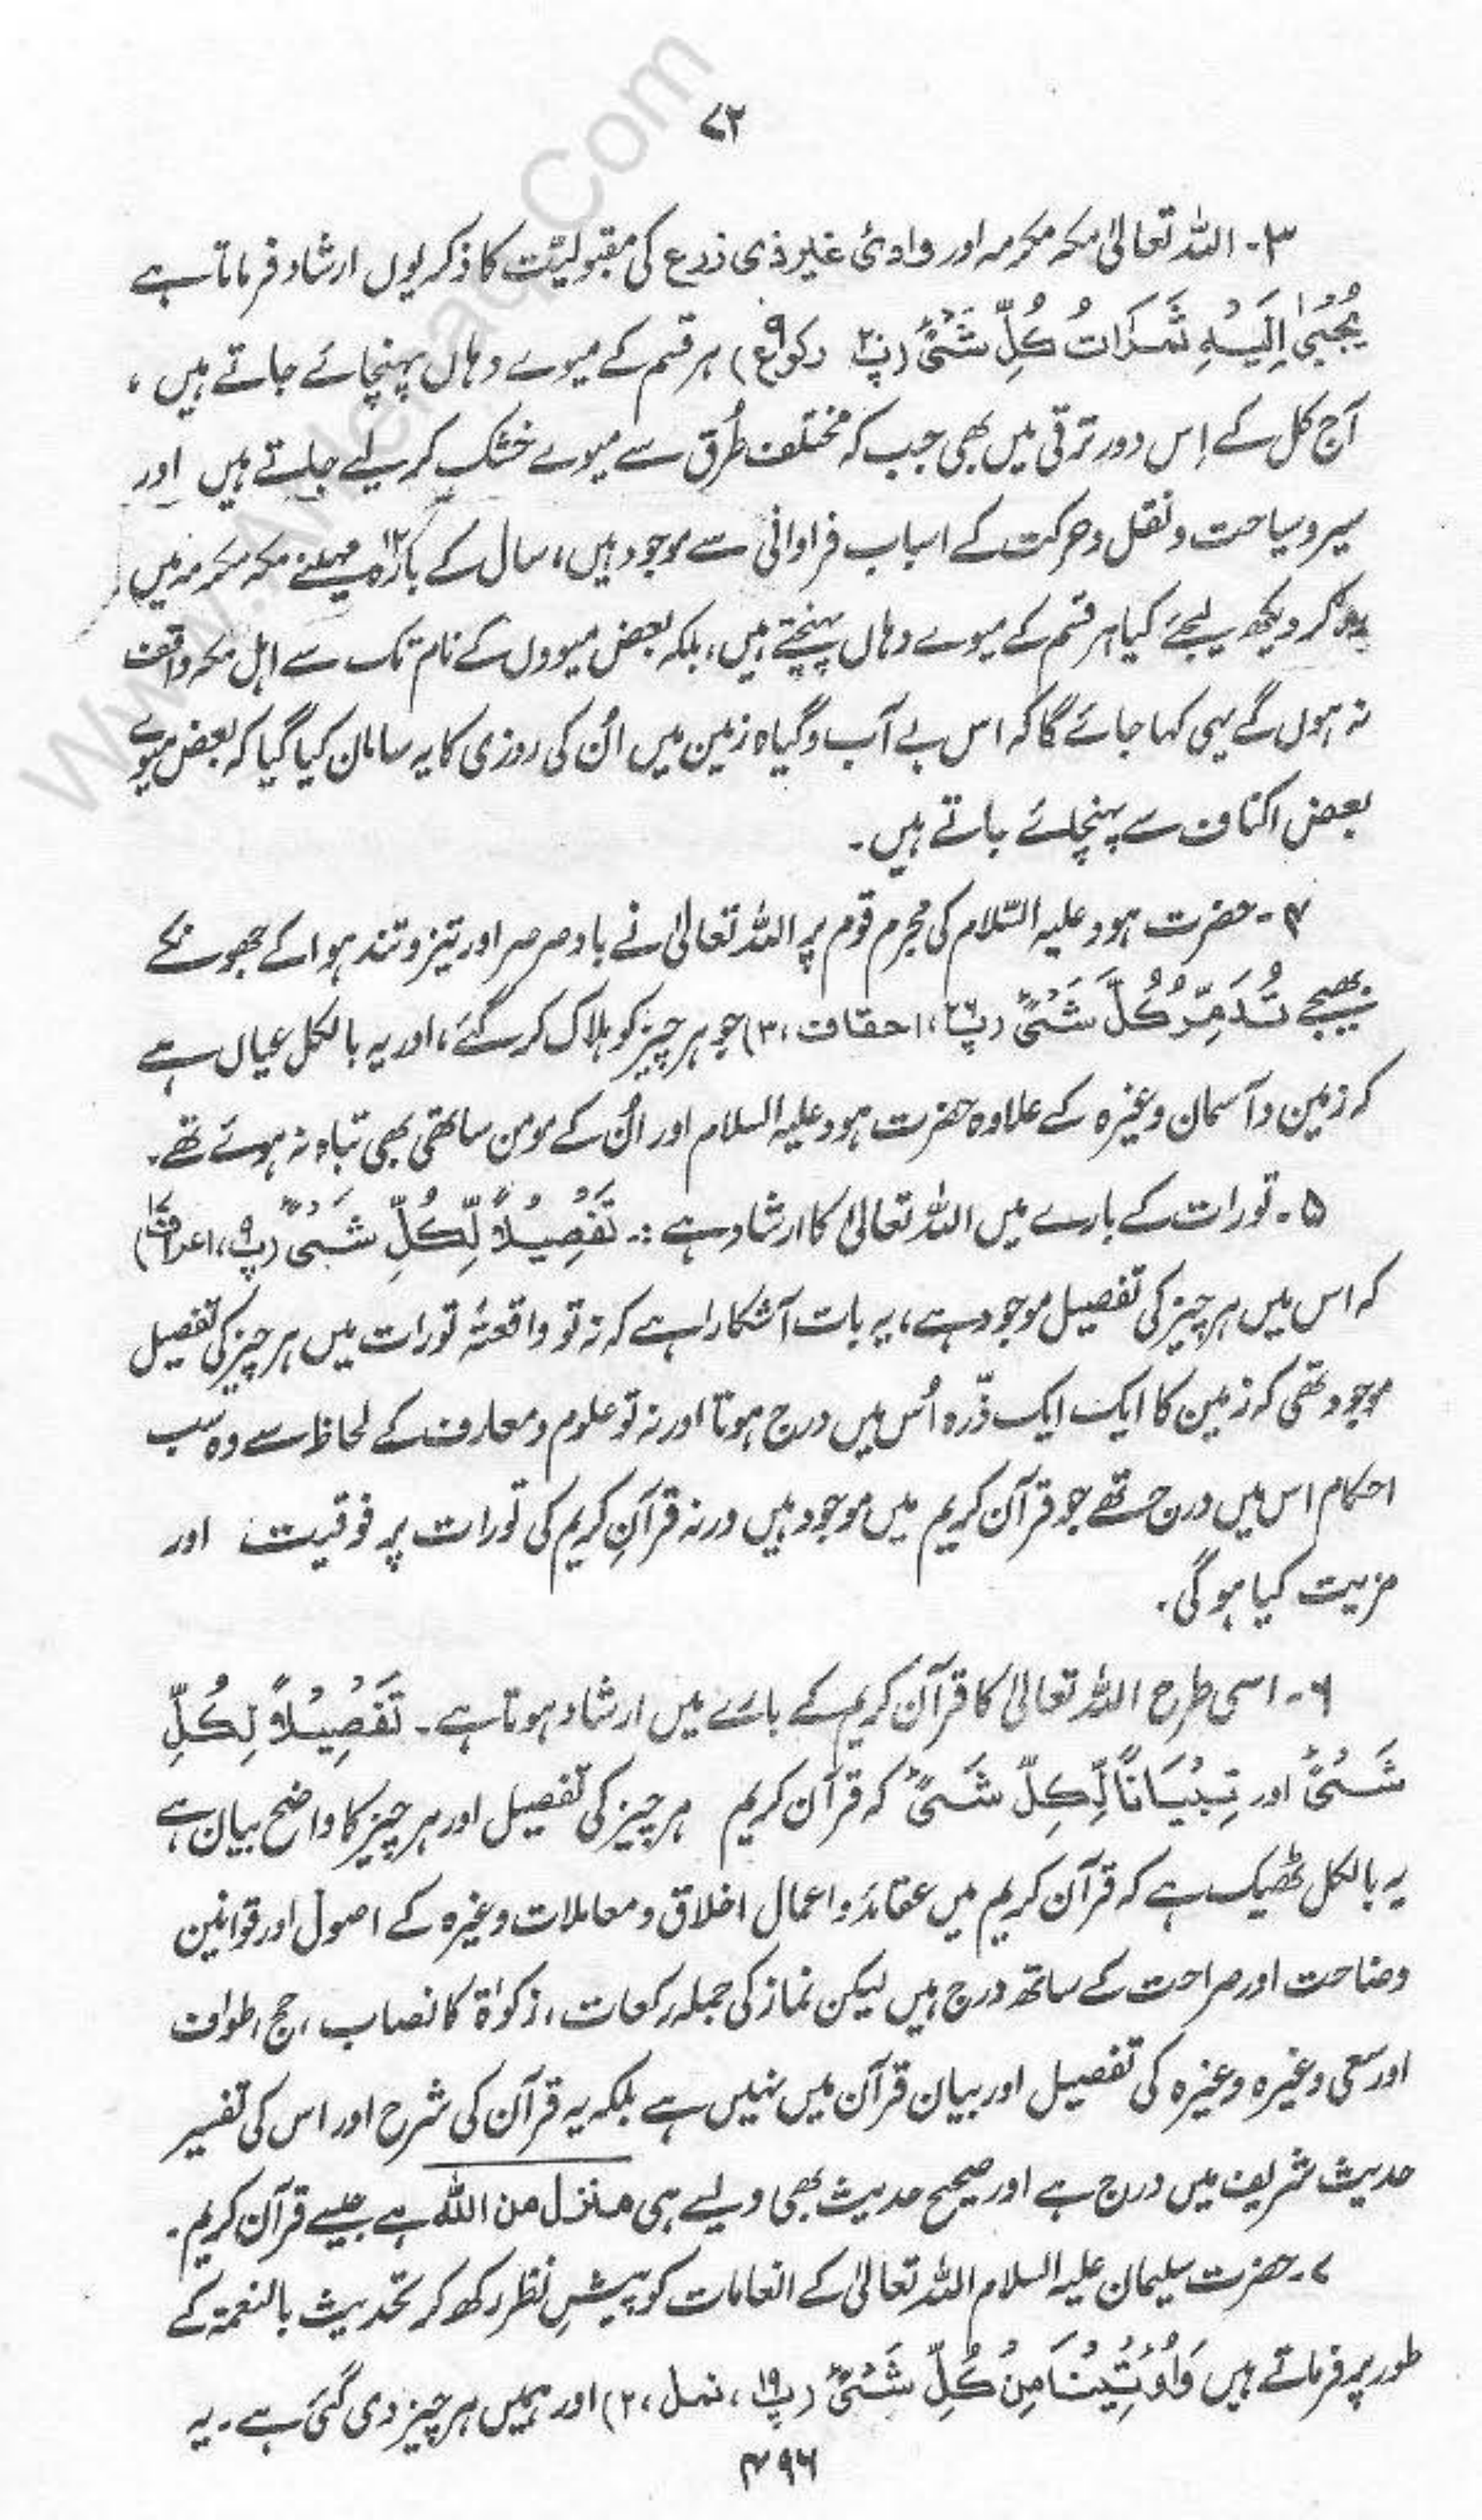 ۷۲
۳۔ اللہ تعالیٰ مکہ مکرمہ اور وادیٔ غیر ذی زرع کی مقبولیّت کا ذکر یوں ارشاد فرماتا ہے
یُجْبیٰ اِلَیْہِ ثَمَرَاتُ کُلِّ شَیْئٍ (پ۲۰ رکوع۹) ہر قسم کے میوے وہاں پہنچائے جاتے ہیں ،
آج کل کے اِس دور ترقی میں بھی جب کہ مختلف طُرق سے میوے خشک کر لیے جاتے ہیں اور
سیر و سیاحت و نقل و حرکت کے اسباب فراوانی سے موجود ہیں، سال کے بارہ۱۲ مہینے مکہ مکرمہ میں
رہ کر دیکھ لیجئے کیا ہر قسم کے میوے وہاں پہنچتے ہیں، بلکہ بعض میووں کے نام تک سے اہل مکہ واقف
نہ ہوں گے یہی کہا جائے گا کہ اس بے آب و گیاہ زمین میں اُن کی روزی کا یہ سامان کیا گیا کہ بعض میوے
بعض اکناف سے پہنچائے جاتے ہیں۔
۴۔ حضرت ہود علیہ السّلام کی مجرم قوم پر اللہ تعالیٰ نے باد صرصر اور تیز و تند ہوا کے جھونکے
بھیجے تُدَمِّرُ کُلَّ شَیْئٍ (پ۲۶، احقاف، ۳) جو ہر چیز کو ہلاک کر گئے، اور یہ بالکل عیاں ہے
کہ زمین و آسمان وغیرہ کے علاوہ حضرت ہود علیہ السلام اور اُن کے مومن ساتھی بھی تباہ نہ ہوئے تھے۔
۵۔ تورات کے بارے میں اللہ تعالیٰ کا ارشاد ہے :۔ تَفْصِیْلاً لِّکُلِّ شَیْئٍ (پ۹، اعراف)
کہ اس میں ہر چیز کی تفصیل موجود ہے، یہ بات آشکارا ہے کہ نہ تو واقعۃً تورات میں ہر چیز کی تفصیل
موجود تھی کہ زمین کا ایک ایک ذرّہ اُس میں درج ہوتا اور نہ تو علوم و معارف کے لحاظ سے وہ سب
احکام اس میں درج تھے جو قرآن کریم میں موجود ہیں ورنہ قرآنِ کریم کی تورات پر فوقیت اور
مزیت کیا ہوگی۔
۶۔ اسی طرح اللہ تعالیٰ کا قرآن کریم کے بارے میں ارشاد ہوتا ہے۔ تَفْصِیْلاً لِکُلِّ
شَیْئٍ اور تِبْیَانًا لِّکِلِّ شَیْئٍ کہ قرآن کریم ہر چیز کی تفصیل اور ہر چیز کا واضح بیان ہے
یہ بالکل ٹھیک ہے کہ قرآن کریم میں عقائد و اعمال اخلاق و معاملات وغیرہ کے اصول اور قوانین
وضاحت اور صراحت کے ساتھ درج ہیں لیکن نماز کی جملہ رکعات، زکوٰۃ کا نصاب، حج، طواف
اور سعی وغیرہ وغیرہ کی تفصیل اور بیان قرآن میں نہیں ہے بلکہ یہ قرآن کی شرح اور اس کی تفسیر
حدیث شریف میں درج ہے اور صحیح حدیث بھی ویسے ہی منزل من اللہ ہے جیسے قرآن کریم۔
۷۔ حضرت سلیمان علیہ السلام اللہ تعالیٰ کے انعامات کو پیشِ نظر رکھ کر تحدیث بالنعمۃ کے
طور پر فرماتے ہیں وَاُوْتِیْنَا مِنْ کُلِّ شَیْئٍ (پ۱۹، نمل، ۲) اور ہمیں ہر چیز دی گئی ہے۔ یہ
۴۹۶